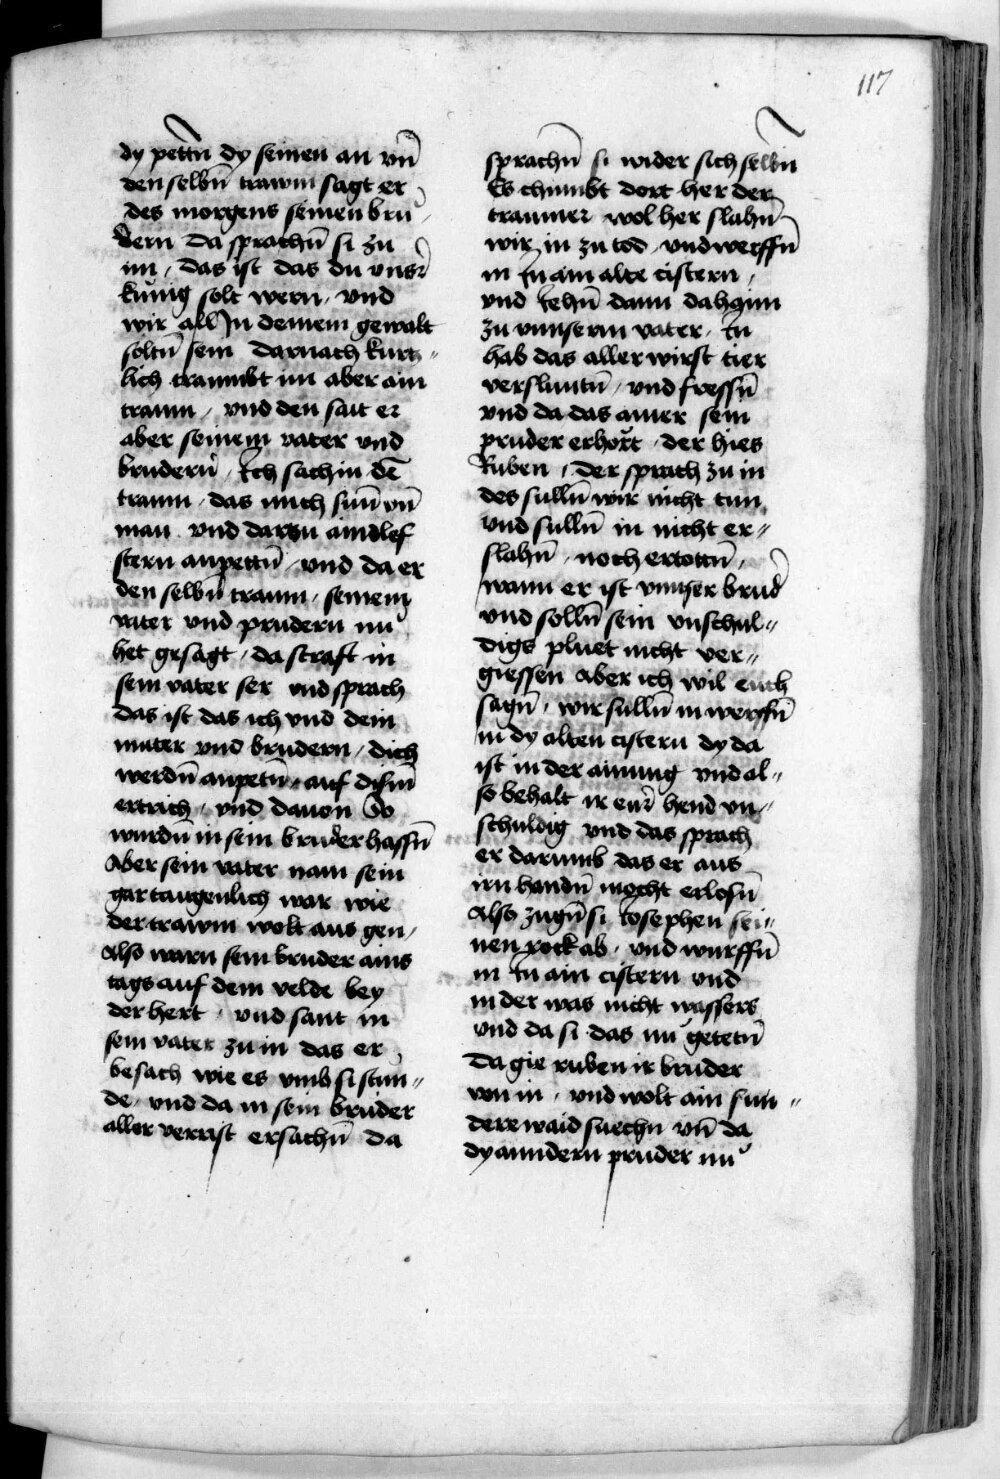 117
dy pettñ dy seinen an vñ
den selbñ trawm sagt er
des morgens seinen bru
dern Da sprachñ si zu
im / Das ist das du vnsr̄
kunig solt wern / vnd
wir all Jn deinem gewalt
soltñ sein Darnach kurtz〃
lich traumbt im aber ain
traum / vnd den sait er
aber seinem vater vnd
brudern̄ / Ich sach in dē
traum / das mich sun̄ vñ
man vnd dartzu aindlef
stern anpettñ / vnd da er
den selbñ traum / seinem
vater vnd prudern nu
het gesagt / da straft in
sein vater ser vnd sprach
das ist das ich vnd dein
muter vnd brudern / dich
werdñ anpetñ / auf dism̄
ertrich / vnd dauon So
wurdñ in sein bruder hassñ
Aber sein vater nam sein
gar taugenlich war wie
der trawm wolt aus gen /
Also warn sein bruder ains
tags auf dem velde bey
der hert / vnd sant in
sein vater zu in das er
besach wie es vmb si stun〃
de / vnd da in sein bruder
aller verrist ersachñ da
sprachñ si wider sich selbñ
Es chumbt dort her der
traumer wol her slahñ
wir in zu tod / vnd werffñ
in Jn ain alte cistern /
vnd Jehñ dann dahaim
zu vnnserm vater / Jn
hab das aller wirst tier
versluntñ / vnd fressñ
vnd da das ainer sein
pruder erhort / der hies
Ruben / der sprach zu in
des sullñ wir nicht tun
vnd sullñ in nicht er〃
slahñ / noch ertottñ /
wann er ist vnnser brud̄
vnd sollñ sein vnschul〃
digs pluet nicht ver〃
giessen Aber ich wil euch
sagñ / wir sullñ in werffñ
in dy alten cistern dy da
ist in der ainung vnd al〃
so behalt ir eur̄ hend vn〃
schuldig vnd das sprach
er darumb das er aus
irn handñ mocht erlosñ
Also zugñ si Josephen sei〃
nen rock ab / vnd wurffñ
in Jn ain cistern vnd
in der was nicht wassers
vnd da si das nu getetñ
Da gie ruben ir bruder
von in / vnd wolt ain sun〃
dere waid suechn vñ da
dy anndern pruder nu